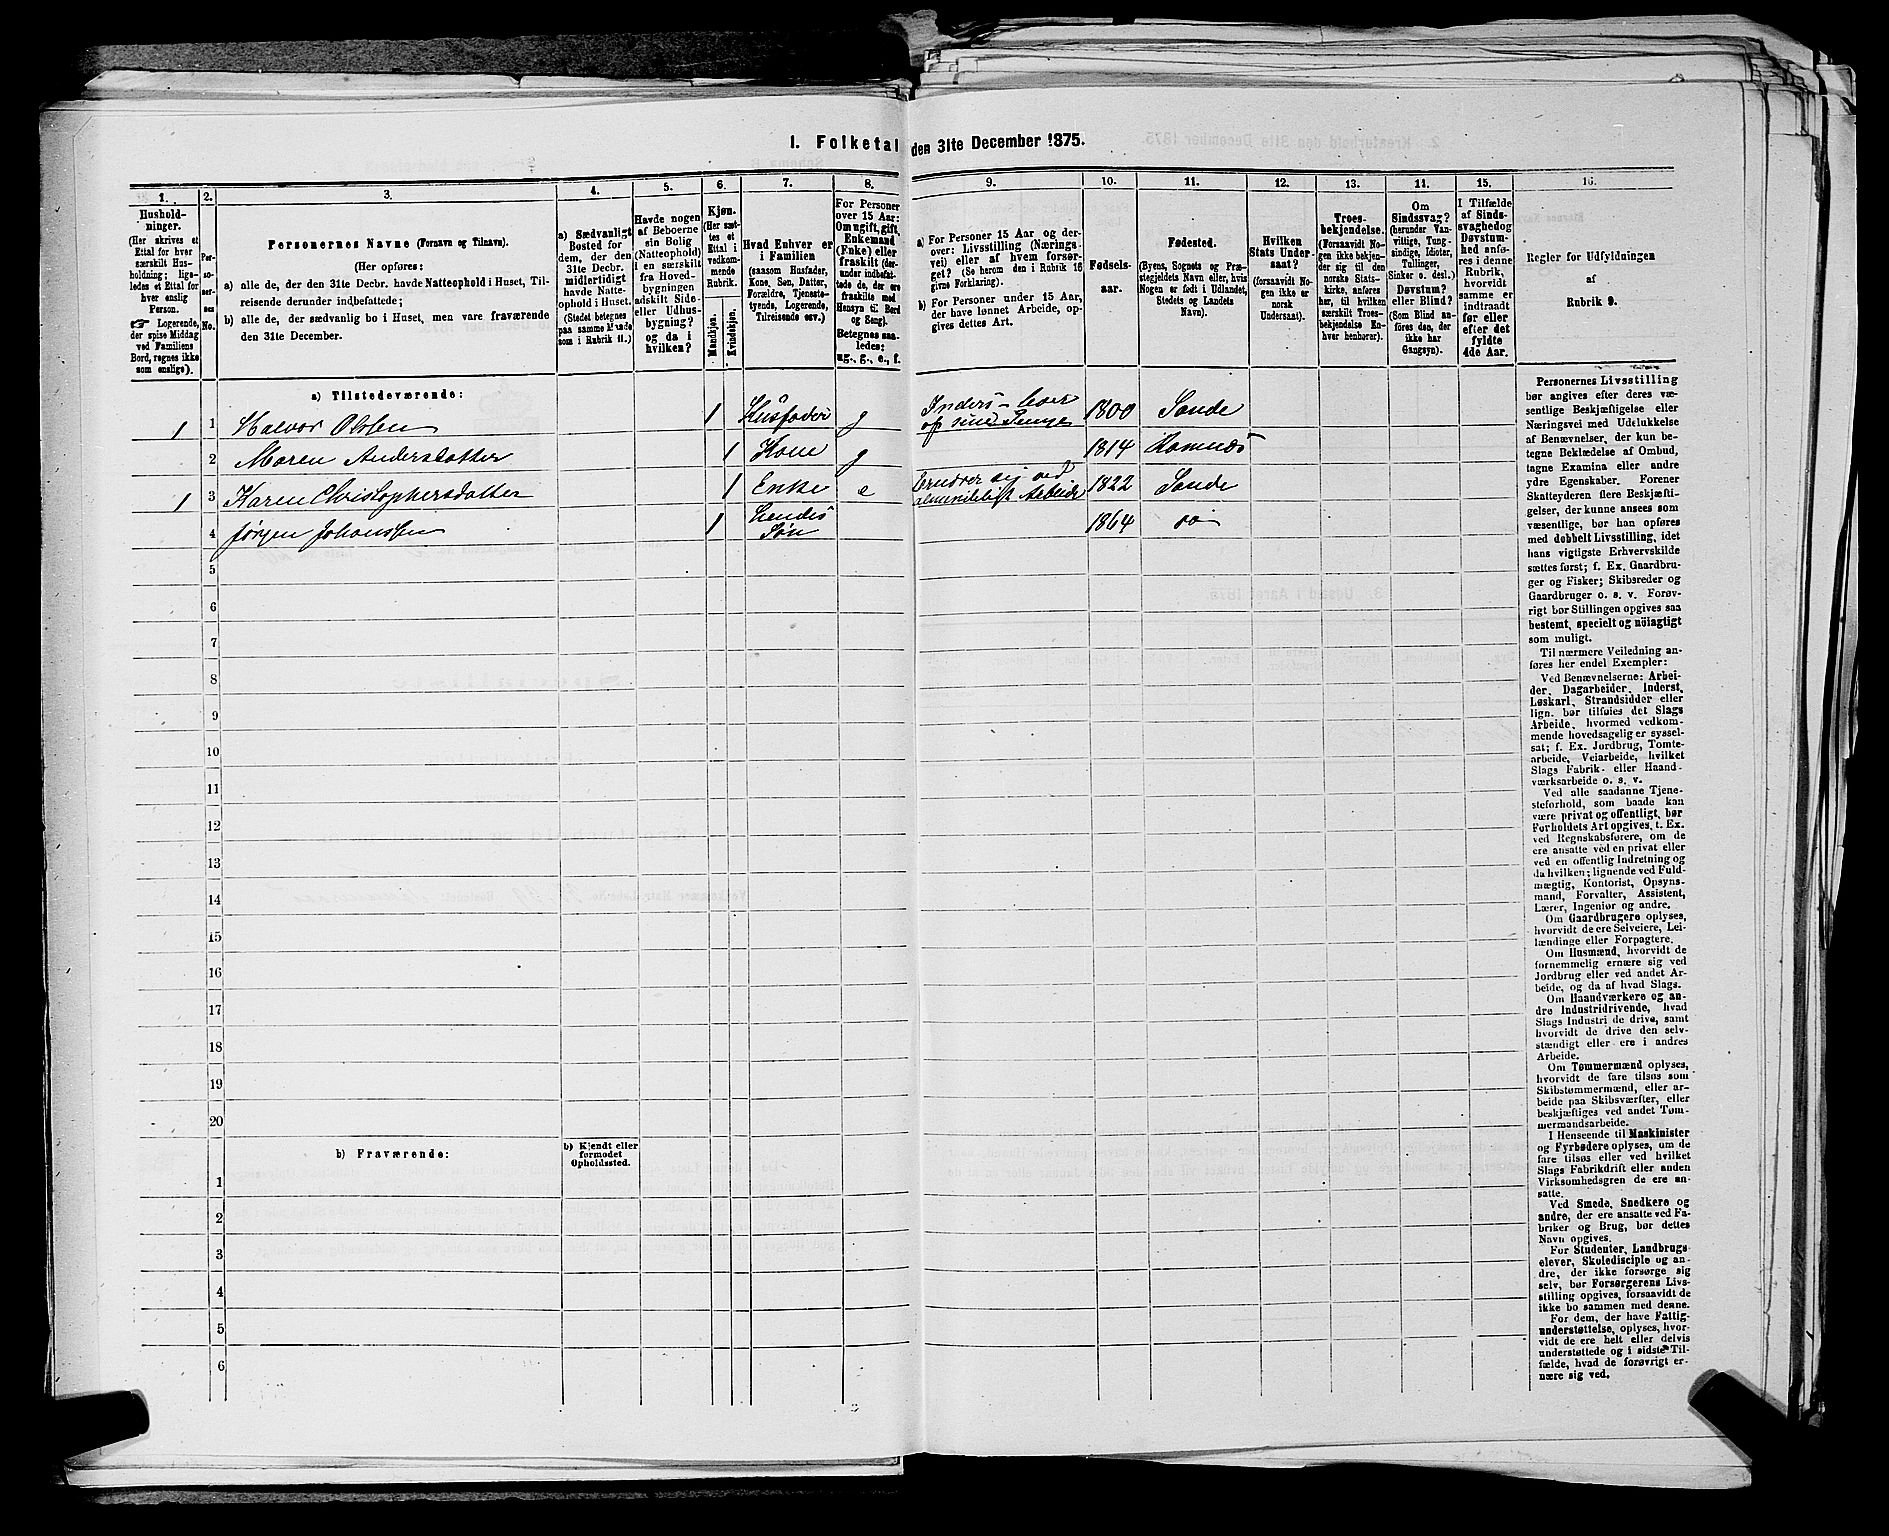 1. Folketal den 31te December 1875.
1.
Hushold-
ninger.
(Her skrives et
Ettal for hver
særskilt Hus-
holdning; lige-
ledes et Ettal for
hver enslig
Person.
☞ Logerende,
der spise Middag
ved Familiens
Bord, regnes ikke
som enslige).
2.
Per-
so-
ner-
nes
No.
3.
Personernes Navne (Fornavn og Tilnavn).
(Her opføres:
a) alle de, der den 31te Decbr. havde Natteophold i Huset, Til-
reisende derunder indbefattede;
b) alle de, der sædvanlig bo i Huset, men vare fraværende
den 31te December.
4.
a) Sædvanligt
Bosted for
dem, der den
31te Decbr.
midlertidigt
havde Natte-
ophold i Huset.
(Stedet betegnes
paa samme Maade
som i Rubrik 11.)
5.
Havde nogen
af Beboerne
sin Bolig
(Natteophold)
i en særskilt
fra Hoved-
bygningen
adskilt Side-
eller Udhus-
bygning?
og da i
hvilken?
6.
Kjøn.
(Her sæt-
tes et
Ettal i
vedkom-
mende
Rubrik.
Mandkjøn.
Kvindekjøn.
7.
Hvad Enhver er
i Familien
(saasom Husfader,
Kone, Søn, Datter,
Forældre, Tjeneste-
tyende, Logerende,
Tilreisende osv.)
8.
For Personer
over 15 Aar:
Om ugift, gift,
Enkemand
(Enke) eller
fraskilt (der-
under indbefat-
tede de, der ere
fraskilte med
Hensyn til Bord
og Seng).
Betegnes saa-
ledes:
ug., g., e., f.
9.
a) For Personer 15 Aar og der-
over: Livsstilling (Nærings-
vei) eller af hvem forsør-
get? (Se herom den i Rubrik 16
givne Forklaring).
b) For Personer under 15 Aar,
der have lønnet Arbeide, op-
gives dettes Art.
10.
Fødsels-
aar.
11.
Fødested.
(Byens, Sognets og Præ-
stegjeldets Navn eller, hvis
Nogen er født i Udlandet,
Stedets og Landets
Navn).
12.
Hvilken
Stats Under-
saat?
(forsaavidt No-
gen ikke er
norsk
Undersaat).
13.
Troes-
bekjendelse.
(Forsaavidt No-
gen ikke bekjen-
der sig til den
norske Stats-
kirke, anføres
her, til hvilken
særskilt Troes-
bekjendelse En-
hver henhører).
14.
Om
Sindssvag?
(herunder Van-
vittige, Tung-
sindige, Idioter,
Tullinger,
Sinker o. desl.)
Døvstum?
eller Blind?
(Som Blind an-
føres den, der
ikke har
Gangsyn).
15.
I Tilfælde
af Sinds-
svaghed og
Døvstum-
hed anfø-
res i denne
Rubrik,
hvorvidt
samme er
indtraadt
før eller
efter det
fyldte
4de Aar.
16.
Regler for Udfyldningen
af
Rubrik 9.
a) Tilstedeværende:
1 1 Halvor Olsen 1 Husfader g Inderst - lever af sine Penge 1800 Sande
2 Maren Andersdatter 1 Kone g 1814 Ramnæs
1 3 Karen Christophersdatter 1 Enke e Ernærer sig ved almindeligt Arbeide 1822 Sande
4 Jørgen Johanssen 1 Hendes Søn 1864 do
5
6
7
8
9
10
11
12
13
14
15
16
17
18
19
20
b) Fraværende:
b) Kjendt eller
formodet
Opholdssted.
1
2
3
4
5
6
Personernes Livsstilling
bør angives efter deres væ-
sentlige Beskjæftigelse eller
Næringsvei med Udelukkelse
af Benævnelser, der kun be-
tegne Beklædelse af Ombud,
tagne Examina eller andre
ydre Egenskaber. Forener
Skatteyderen flere Beskjæfti-
gelser, der kunne ansees som
væsentlige, bør han opføres
med dobbelt Livsstilling, idet
hans vigtigste Erhvervskilde
sættes først; f. Ex. Gaardbru-
ger og Fisker; Skibsreder og
Gaardbruger o. s. v. Forøv-
rigt bør Stillingen opgives saa
bestemt, specielt og nöiagtigt
som muligt.
Til nærmere Veiledning an-
føres her endel Exempler:
Ved Benævnelserne: Arbei-
der, Dagarbeider, Inderst,
Løskarl, Strandsidder eller
lign. bør tilføies det Slags
Arbeide, hvormed vedkom-
mende hovedsagelig er syssel-
sat; f. Ex. Jordbrug, Tomte-
arbeide, Veiarbeide, hvilket
Slags Fabrik- eller Haand-
værksarbeide o. s. v.
Ved alle saadanne Tjene-
steforhold, som baade kan
være privat og offentligt, bør
Forholdets Art opgives, t. Ex.
ved Regnskabsførere, om de
ere ansatte ved en privat eller
ved en offentlig Indretning og
da hvilken; lignende ved Fuld-
mægtig, Kontorist, Opsyns-
mand, Forvalter, Assistent,
Lærer, Ingeniør og andre.
Om Gaardbrugere oplyses,
hvorvidt de ere Selveiere, Lei-
lændinge eller Forpagtere.
Om Husmænd, hvorvidt de
fornemmelig ernære sig ved
Jordbrug eller ved andet Ar-
beide, og da af hvad Slags.
Om Haandværkere og an-
dre Industridrivende, hvad
Slags Industri de drive, samt
hvorvidt de drive den selv-
stændigt eller ere i andres
Arbeide.
Om Tømmermænd oplyses,
hvorvidt de fare tilsøs som
Skibstømmermænd, eller ar-
beide paa Skibsværfter, eller
beskjæftiges ved andet Tøm-
mermandsarbeide.
I Henseende til Maskinister
og Fyrbødere oplyses, om de
fare tilsøs eller ved hvilket
Slags Fabrikdrift eller anden
Virksomhedsgren de ere an-
satte.
Ved Smede, Snedkere og
andre, der ere ansatte ved Fa-
briker og Brug, bør dettes
Navn opgives.
For Studenter, Landbrugs-
elever, Skoledisciple og an-
dre, der ikke forsørge sig
selv, bør Forsørgerens Livs-
stilling opgives, forsaavidt de
ikke bo sammen med denne.
For dem, der have Fattig-
understøttelse, oplyses, hvor-
vidt de ere helt eller delvis
understøttede og i sidste Til-
fælde, hvad de forøvrigt er-
nære sig ved.